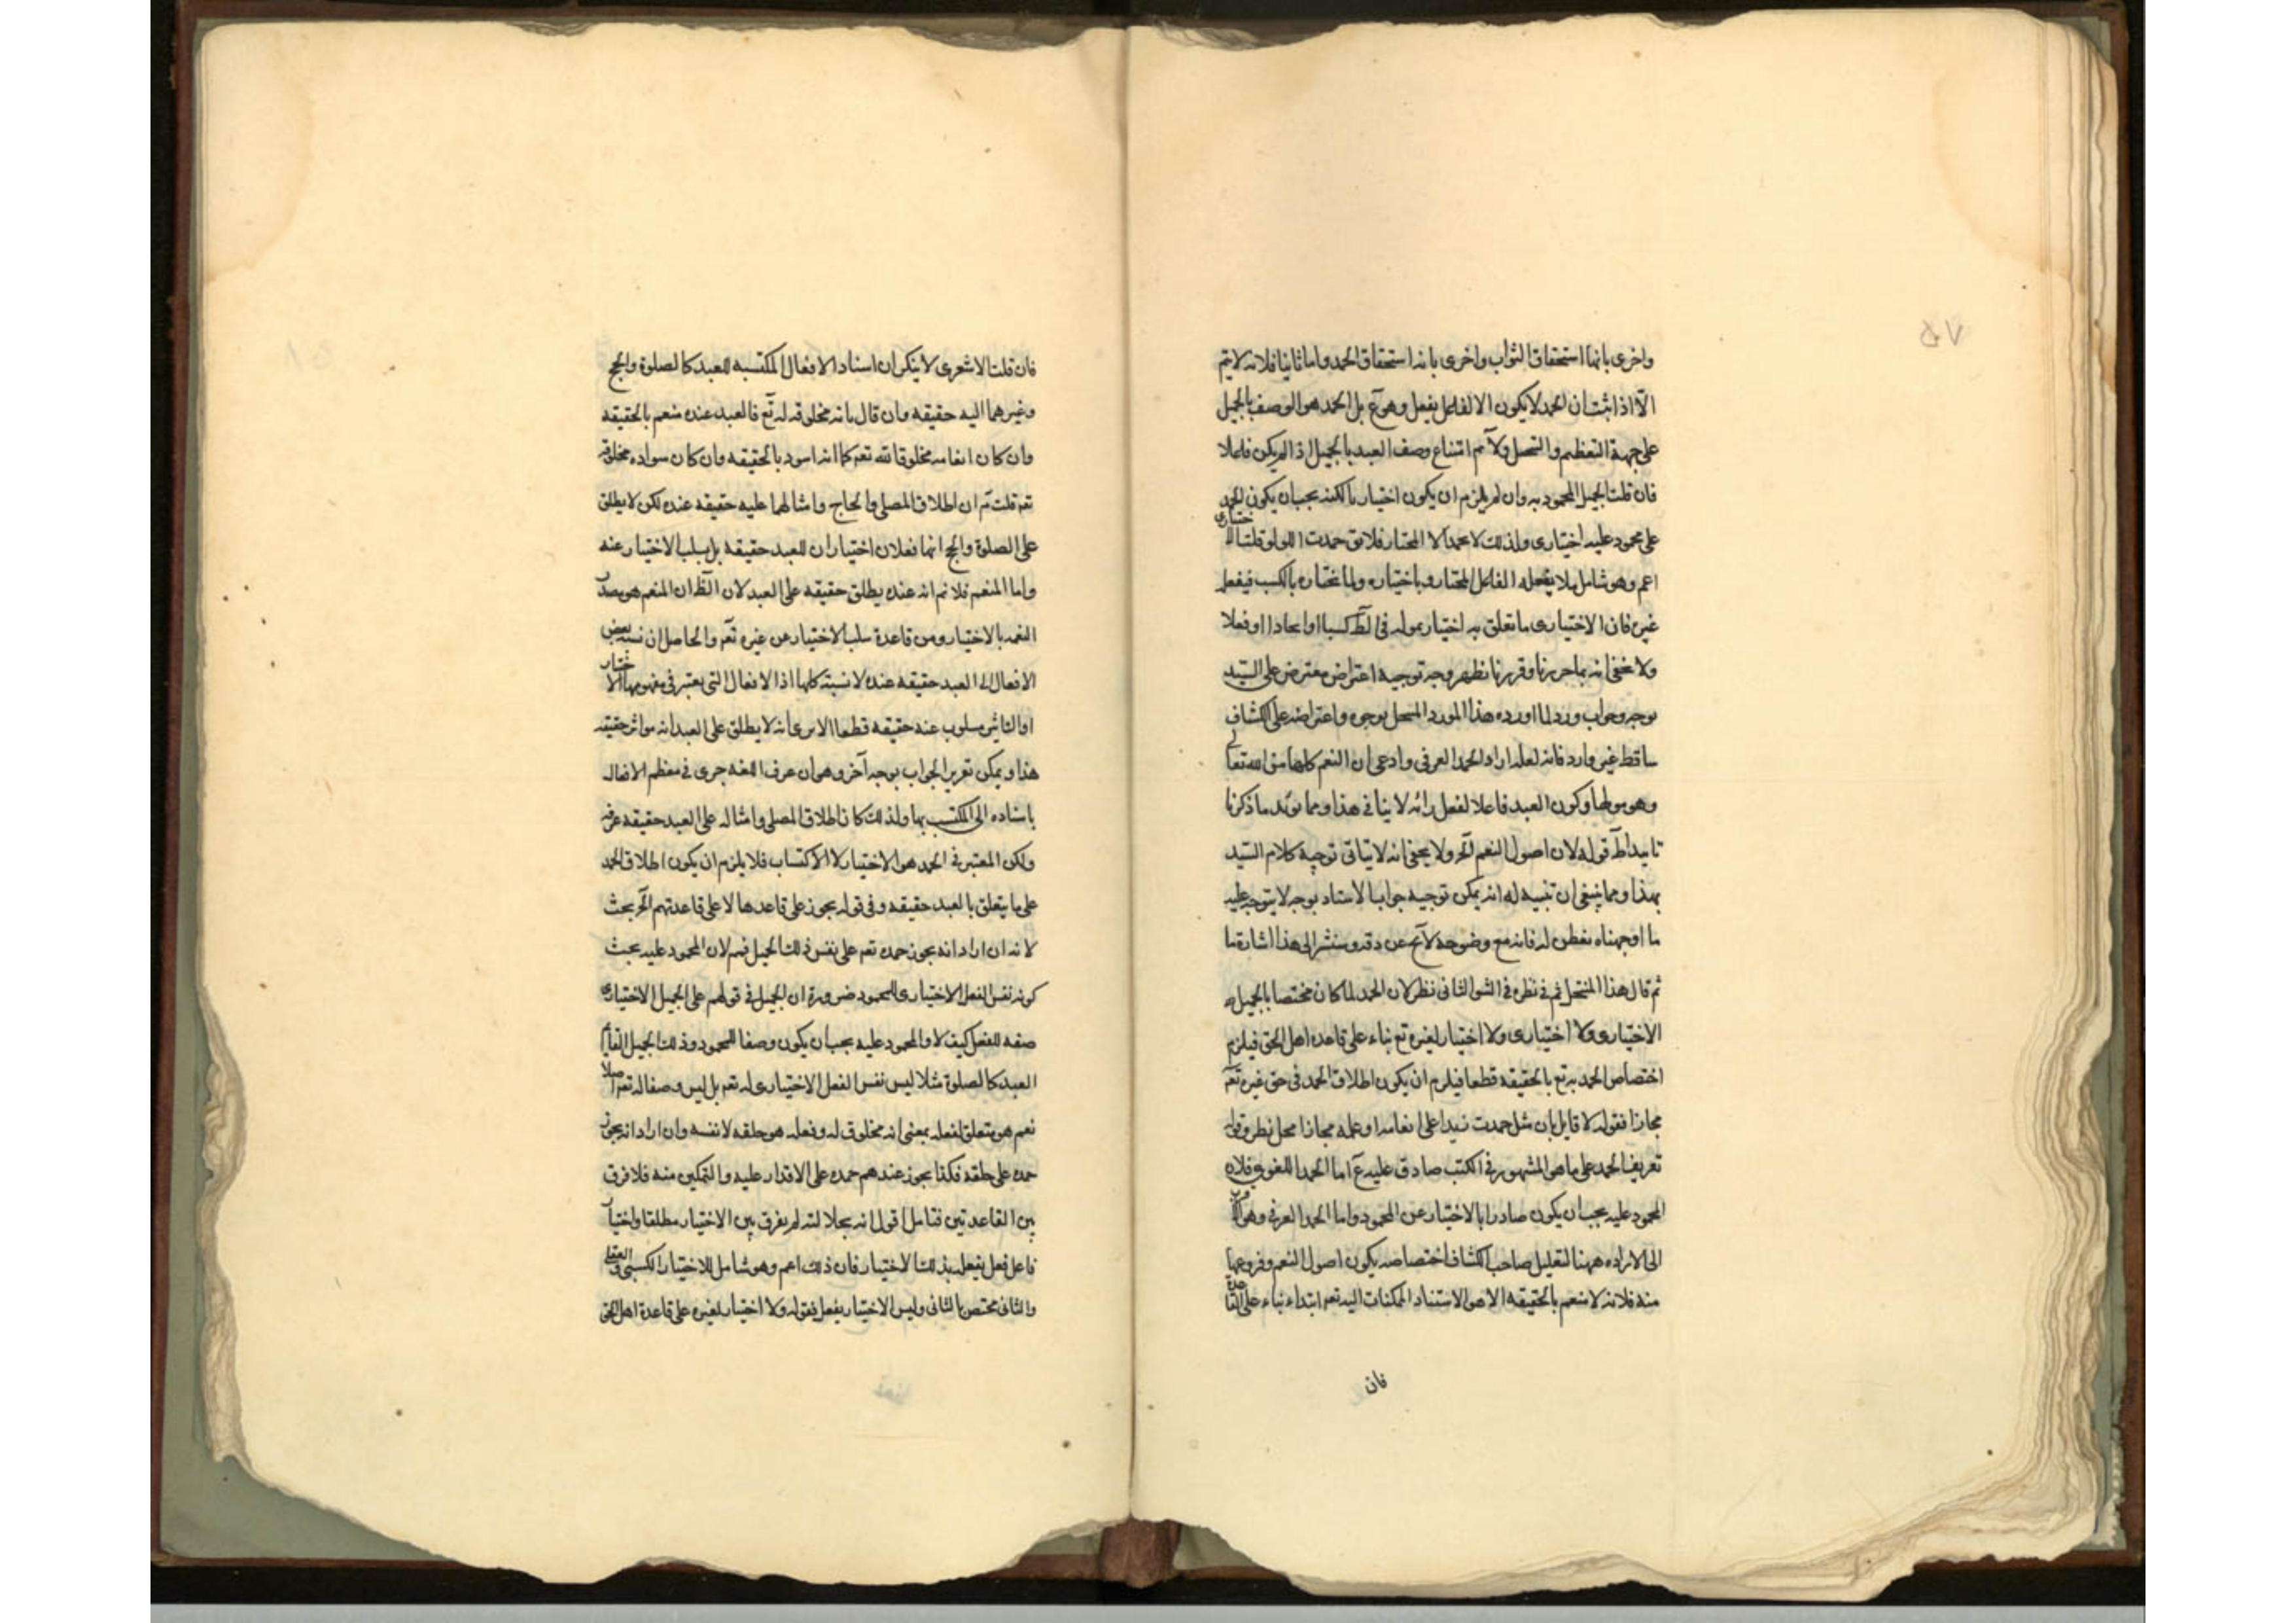 واخرى بانها استحقاق الثواب واخرى بانه استحقاق الحمد واما ثانيا فلانه لا يتم
الا اذا ثبت ان الحمد لا يكون الا لفاعل يفعل وهو ع بل الحمد هو الوصف بالجميل
على جهة التعظيم و ولا نم امتناع وصف العبد بالجميل اذا لم يكن فاعلا
فان قلت الجميل المحمود به وان لم يلزم ان يكون اختياريا لكنه يجب ان يكون الحمد
على محمود عليه اختيارى ولذلك لا يحمد الا المختار فلا يق حمدت اللؤلؤ قلت الاختيارى
اعم وهو شامل لما يفعله الفاعل المختار وباختياره ولما يختاره بالكسب فيفعل
غيره فان الاختيارى ما تعلق به اختيار موليه فى الظ كسبا او ايجادا او فعلا
ولا يخفى انه بما حررنا وقررنا ظهر وجه توجيه اعتراض معترض على السيد
بوجه وجواب ورد لما اورده هذا المورد المنتحل بوجوه واعتراضه على الكشاف
ساقط غير وارد فانه لعله اراد الحمد العرفى وادعى ان النعم كلها من الله تعالى
وهو موليها وكون العبد فاعلا لفعل رائه لا ينافى هذا ومما يؤيد ما ذكرنا
تاييدا ظ قوله لان اصول النعم الخ ولا يخفى انه لا يتاتى توجيه كلام السيد
بهذا ومما ينبغى ان تنبه له انه يمكن توجيه جواب الاستاد بوجه لا يتوجه عليه
ما اوجهناه تفطن له فانه مع وضوحه لا يخ عن دقه وسنشير الى هذا اشارة ما
ثم قال هذا المنتحل ثم فى نظره فى الشق الثانى نظر لان الحمد لما كان مختصا بالجميل
الاختيارى ولا اختيارى ولا اختيار لغيره تع بناء على قاعده اهل الحق فيلزم
اختصاص الحمد به تع بالحقيقه قطعا فيلزم ان يكون اطلاق الحمد فى حق غيره تعه
مجازا فقوله لا قايل بان مثل حمدت زيدا على انعامه او عمله مجازا محل نظر وقوله
تعريف الحمد على ما هو المشهور فى الكتب صادق عليه ع اما الحمد اللغوى فلان
المحمود عليه يجب ان يكون صادرا بالاختيار عن المحمود واما الحمد العرفى وهو
الى الاراده ههنا لتعليل صاحب الكشاف اختصاصه بكون اصول النعم وفروعها
منه فلانه لا منعم بالحقيقه الا هو لاستناد الممكنات اليه تعه ابتداء بناء على القاعدة
فان
فان قلت الاشعرى لا ينكر ان اسناد الافعال المكتسبه للعبد كالصلوة والحج
وغيرهما اليه حقيقه وان قال بانه مخلوقه له تع فالعبد عنده منعم بالحقيقه
وان كان انعامه مخلوقا لله تعه كما انه اسود بالحقيقه وان كان سواده مخلوقه
تعه قلت نم ان اطلاق المصلى والحاج وامثالهما عليه حقيقه عنده لكن لا يطلق
على الصلوة والحج انها فعلان اختياريان للعبد حقيقه بل يسلب الاختيار عنه
واما المنعم فلا نم انه عنده يطلق حقيقه على العبد لان الظ ان المنعم هو مصدر
النعمه بالاختيار ومن قاعدة سلب الاختيار عن غيره تعه والحاصل ان نسبه بعض
الافعال الى العبد حقيقه عنده لا نسبة كلها اذ الافعال التى يعتبر فى مفهومها الاختيار
او التاثير مسلوب عنه حقيقه قطعا الا يرى انه لا يطلق على العبد انه مؤثر حقيقه
هذا ويمكن تقرير الجواب بوجه آخر وهو ان عرف اللغه جرى فى معظم الافعال
باسناده الى المكتسب بها ولذلك كان اطلاق المصلى وامثاله على العبد حقيقه عرفه
ولكن المعتبر فى الحمد هو الاختيار لا الاكتساب فلا يلزم ان يكون اطلاق الحمد
على ما يتعلق بالعبد حقيقه وفى قوله يجوز على قاعدها لا على قاعدتهم الخ بحث
لانه ان اراد انه يجوز حمده تعه على نفس ذلك الجميل فهم لان المحمود عليه بحث
كونه نفس الفعل الاختيارى للمحمود ضرورة ان الجميل فى قولهم على الجميل الاختيارى
صفه للفعل كيف لا والمحمود عليه يجب ان يكون وصفا للمحمود وذلك الجميل القايم
العبد كالصلوة مثلا ليس نفس الفعل الاختيارى له تعه بل ليس وصفا له تعه اصلا
نعم هو متعلق لفعله بمعنى انه مخلوق له وفعله هو خلقه لا نفسه وان اراد انه يجوز
حمده على خلقه فكذا يجوز عندهم حمده على الاقدار عليه والتمكين منه فلا فرق
بين القاعدتين فتامل اقول انه بجلالته لم يفرق بين الاختيار مطلقا واختيار
فاعل فعل يفعله بذلك الاختيار فان ذلك اعم وهو شامل للاختيار الكسبى والعقلى
والثانى مختص بالثانى وليس الاختيار يفعل فقوله ولا اختيار لغيره على قاعدة اهل الحق